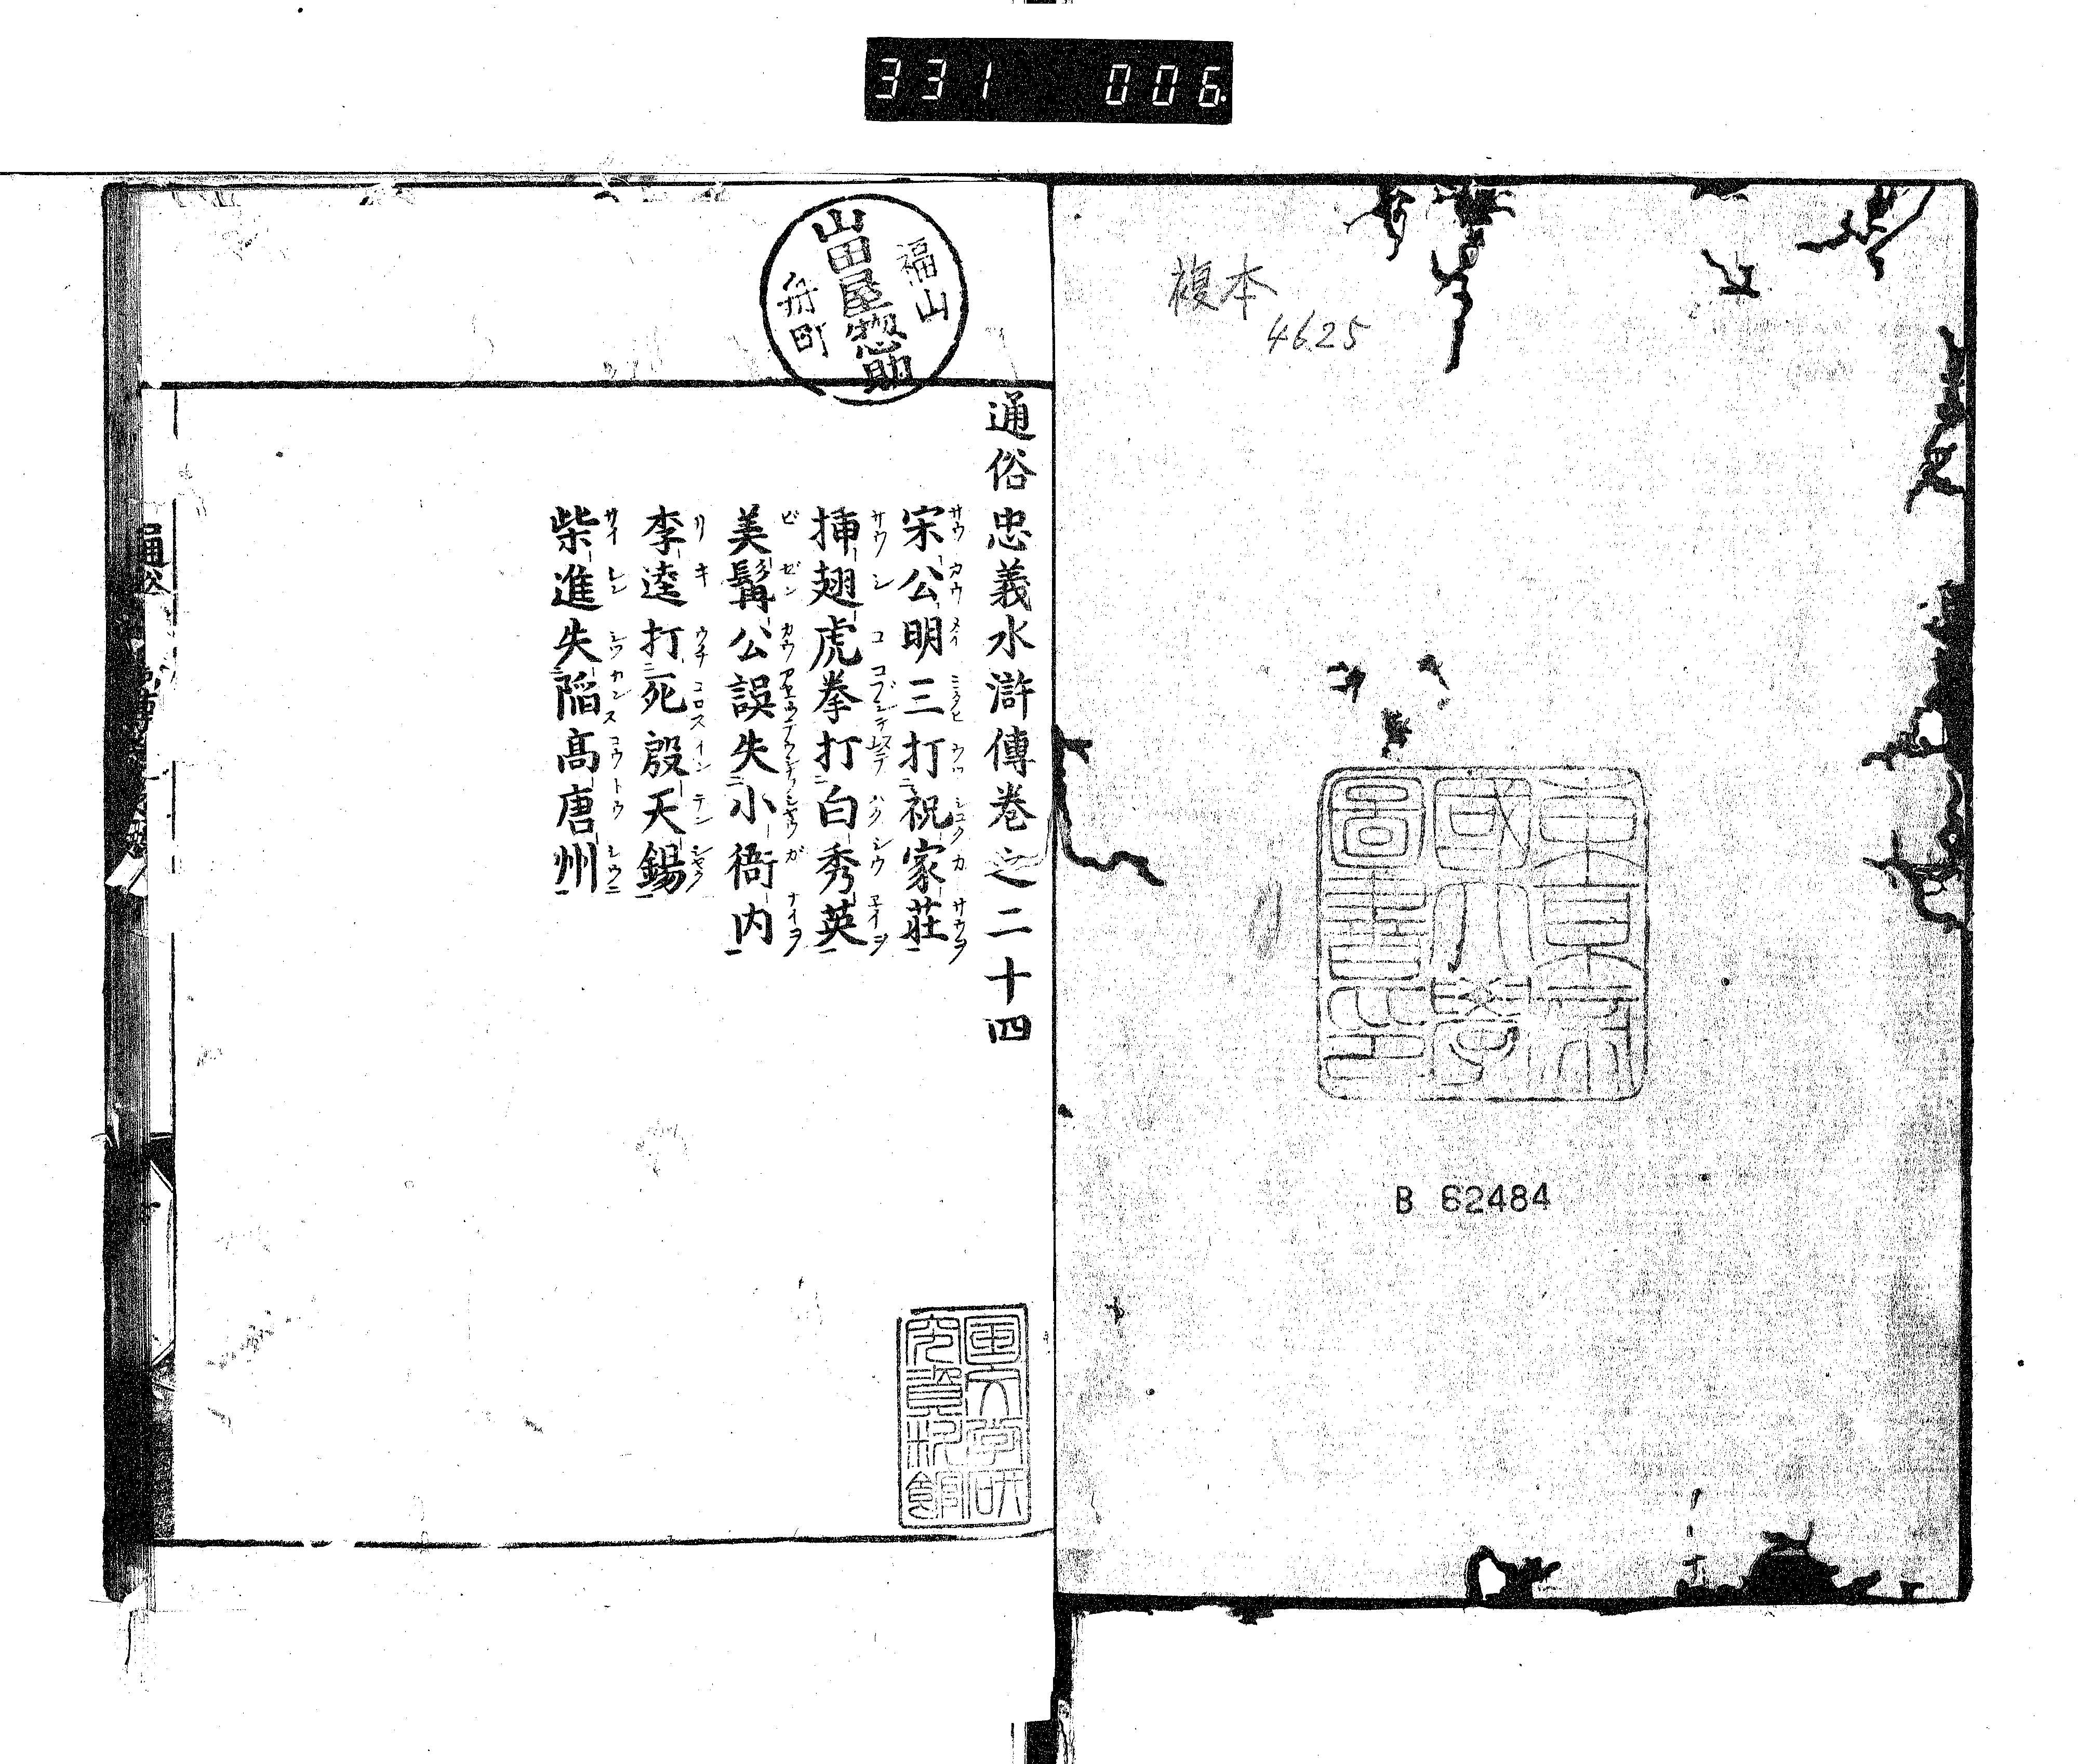 331 006
複本
4625
東京帝
國大學
圖書印
B 62484
福山
山田屋惣助
舟町
通俗忠義水滸傳卷之二十四
宋公明三打祝家莊
挿翅虎拳打白秀英
美髯公誤失小衙内
李逵打死殷天錫
柴進失陷高唐州
国文学研
究資料館
通俗